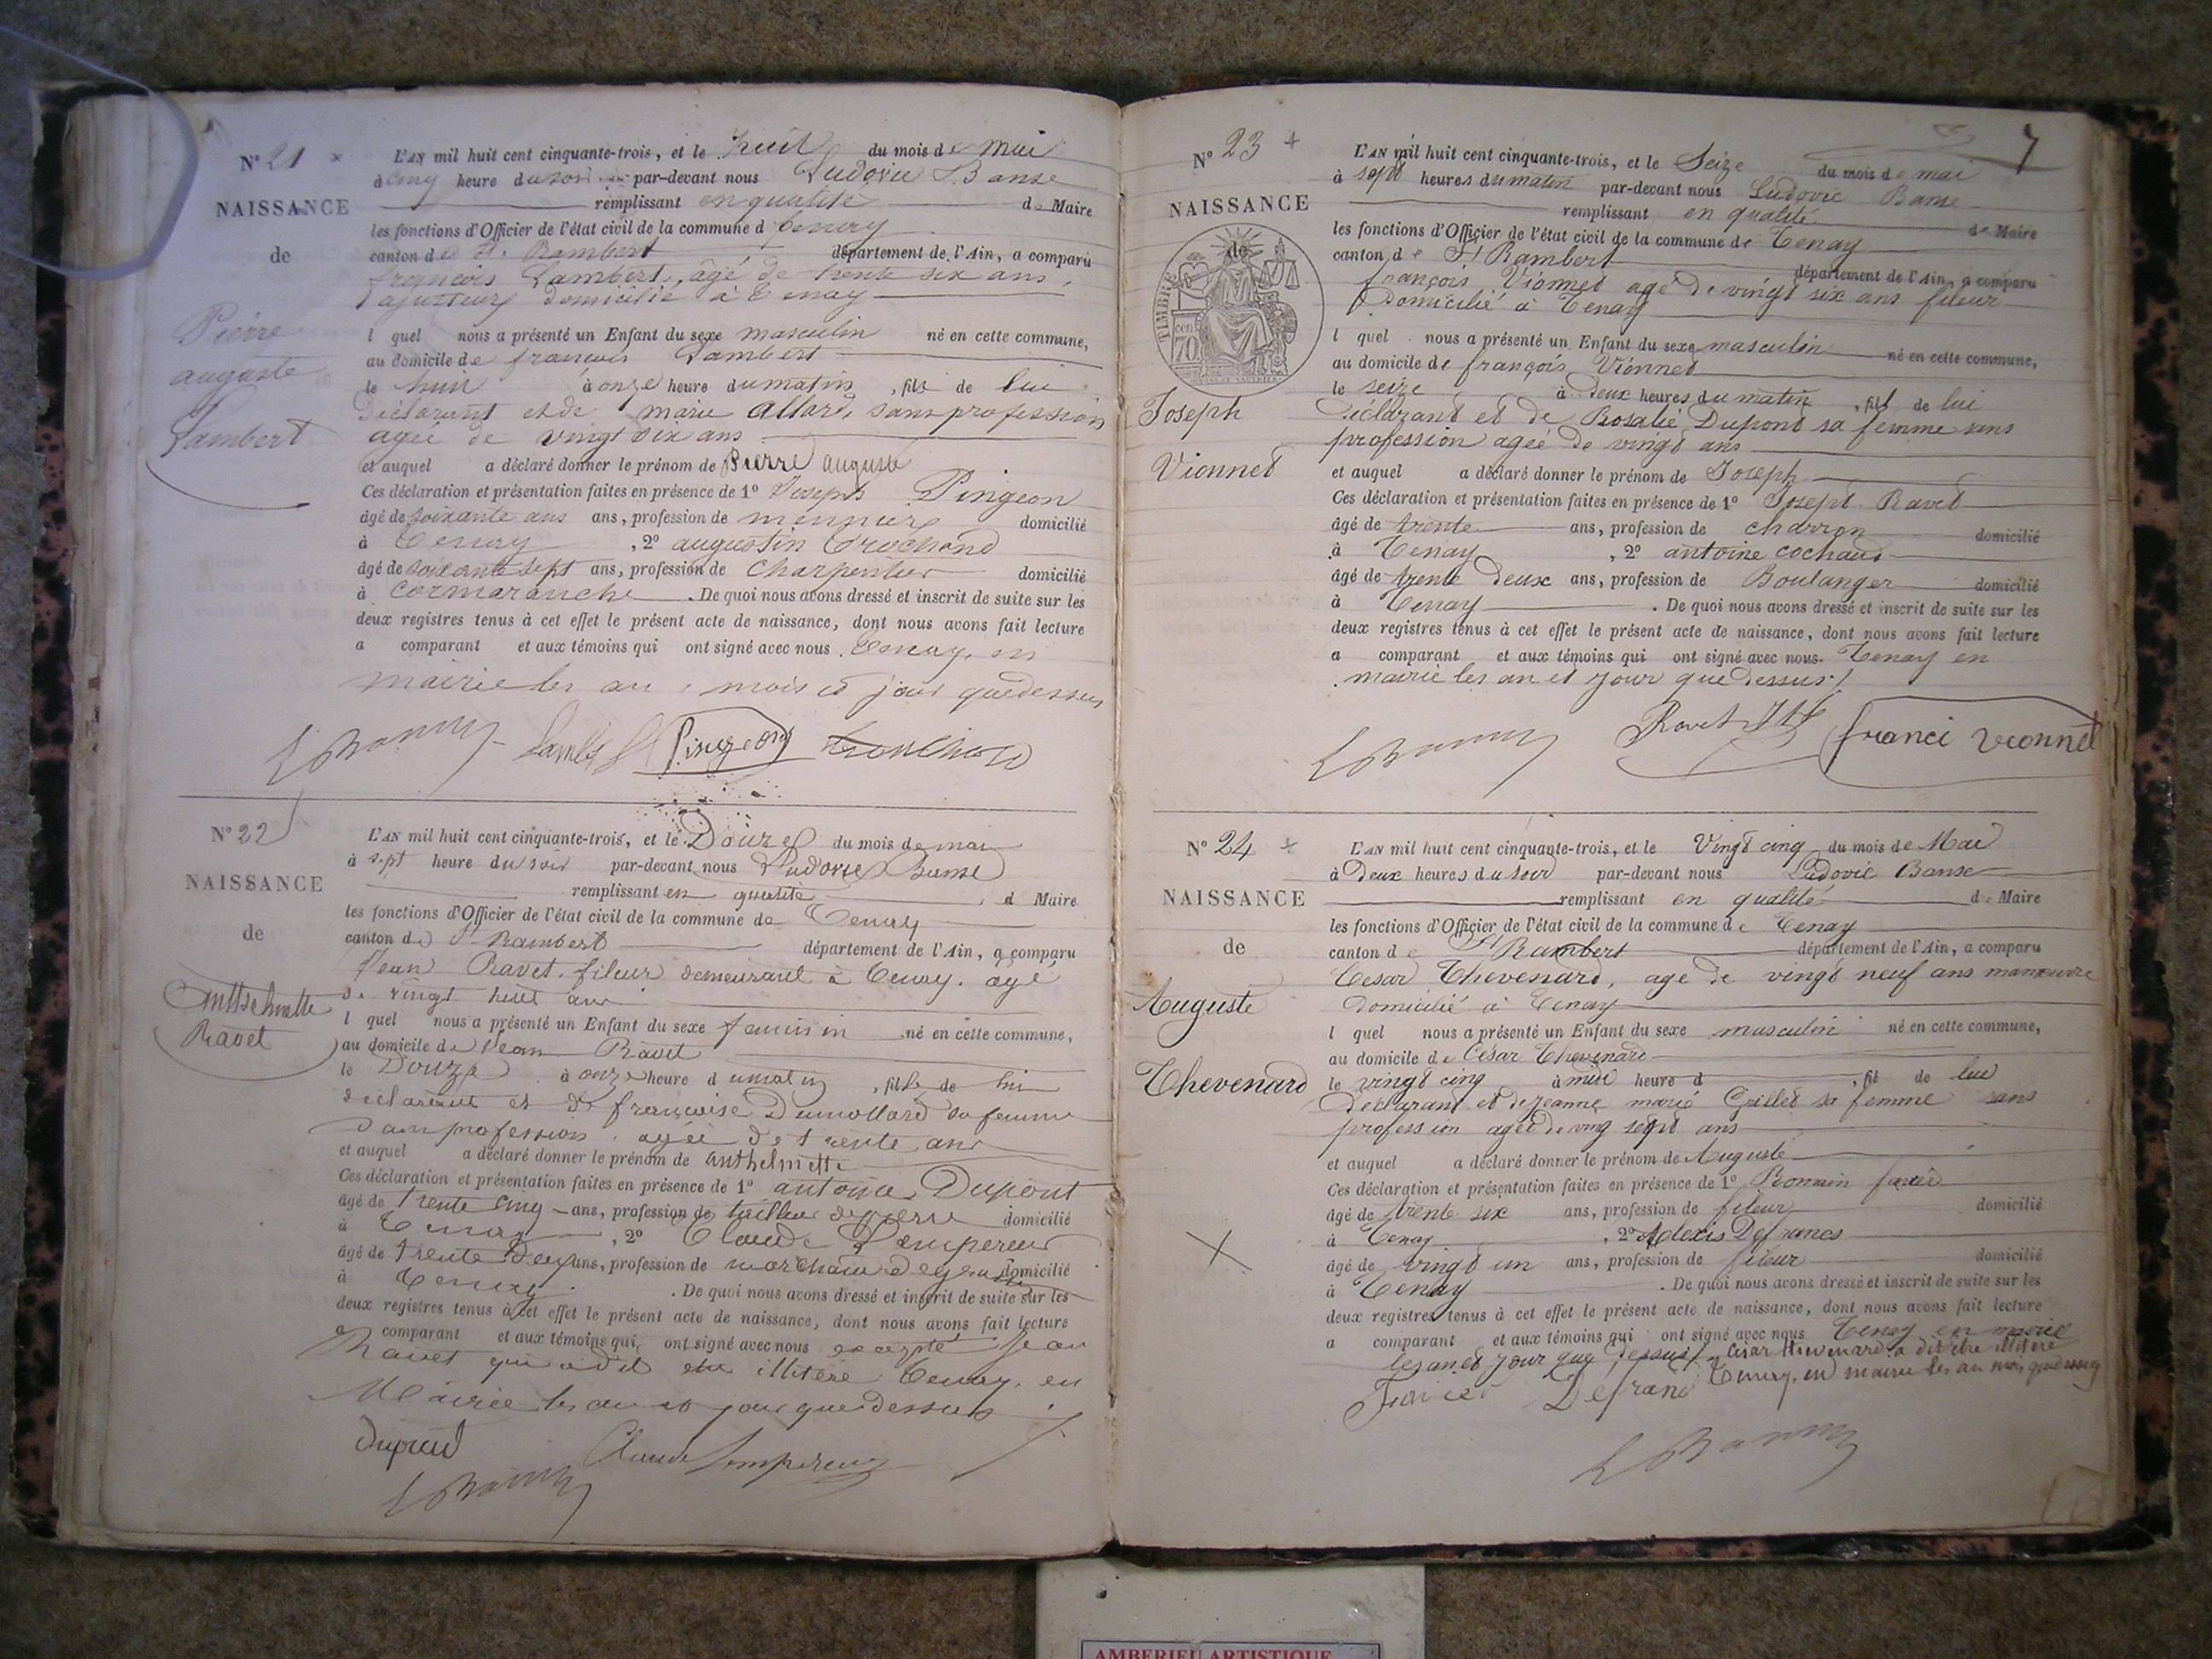 N° 21 ×
NAISSANCE
de
Pierre
auguste
Lambert
L'AN mil huit cent cinquante-trois, et le huit du mois de mai
à cinq heure du soir par-devant nous Ludovic Banse
remplissant en qualité de Maire
les fonctions d'Officier de l'état civil de la commune d Tenay
canton de St. Rambert département de l'Ain, a comparu
françois Lambert, âgé de trente six ans,
ajusteur, domicilié à Tenay
l quel nous a présenté un Enfant du sexe masculin né en cette commune,
au domicile de francois Lambert
le huit à onze heure du matin, fils de lui
déclarant et de marie allard, sans profession
agée de vingt six ans
et auquel a déclaré donner le prénom de Pierre auguste
Ces déclaration et présentation faites en présence de 1° Joseph Pingeon
âgé de soixante ans ans, profession de meunier domicilié
à Tenay, 2° augustin Trochond
âgé de soixante sept ans, profession de Charpentier domicilié
à Cormaranche. De quoi nous avons dressé et inscrit de suite sur les
deux registres tenus à cet effet le présent acte de naissance, dont nous avons fait lecture
a comparant et aux témoins qui ont signé avec nous. Tenay, en
mairie les an, mois et jour que dessus
L Banse Lambert Pingeon
N° 22
NAISSANCE
de
Ravet
L'AN mil huit cent cinquante-trois, et le Douze du mois de mai
à sept heure du soir par-devant nous Ludovic Banse
remplissant en qualité d Maire
les fonctions d'Officier de l'état civil de la commune de Tenay
canton de St Rambert département de l'Ain, a comparu
Jean Ravet, fileur demeurant à Tenay, âgé
de vingt huit ans
l quel nous a présenté un Enfant du sexe feminin né en cette commune,
au domicile de Jean Ravet
le Douze à onze heure du matin, fille de lui
déclarant et de françoise Dumollard sa femme
sans profession, agée de trente ans
et auquel a déclaré donner le prénom de anthelmette
Ces déclaration et présentation faites en présence de 1° antoine Dupont
âgé de trente cinq ans, profession de tailleur de pierre domicilié
à Tenay, 2° Claude Lempereur
âgé de trente deux ans, profession de marchand domicilié
à Tenay. De quoi nous avons dressé et inscrit de suite sur les
deux registres tenus à cet effet le présent acte de naissance, dont nous avons fait lecture
a comparant et aux témoins qui ont signé avec nous excepté Jean
Ravet qui a dit etre illitéré Tenay, en
Mairie les an et jour que dessus
Claude Lempereur
L Banse
7
N° 23 +
NAISSANCE
de
TIMBRE
cen
70
Joseph
Vionnet
L'AN mil huit cent cinquante-trois, et le Seize du mois de mai
à sept heures du matin par-devant nous Ludovic Banse
remplissant en qualité de Maire
les fonctions d'Officier de l'état civil de la commune de Tenay
canton de St Rambert département de l'Ain, a comparu
françois Vionnet agé de vingt six ans fileur
domicilié à Tenay
l quel nous a présenté un Enfant du sexe masculin né en cette commune,
au domicile de françois Vionnet
le seize à deux heures du matin, fil de lui
déclarant et de Rosalie Dupont sa femme sans
profession agée de vingt ans
et auquel a déclaré donner le prénom de Joseph
Ces déclaration et présentation faites en présence de 1° Joseph Ravet
âgé de trente ans, profession de charron domicilié
à Tenay, 2° antoine cochaud
âgé de trente deux ans, profession de Boulanger domicilié
à Tenay. De quoi nous avons dressé et inscrit de suite sur les
deux registres tenus à cet effet le présent acte de naissance, dont nous avons fait lecture
a comparant et aux témoins qui ont signé avec nous. Tenay en
mairie les an et jour que dessus
L Banse Ravet franci vionnet
N° 24 +
NAISSANCE
de
Auguste
Thevenard
L'AN mil huit cent cinquante-trois, et le Vingt cinq du mois de Mai
à Deux heures du soir par-devant nous Ludovic Banse
remplissant en qualité de Maire
les fonctions d'Officier de l'état civil de la commune de Tenay
canton de St Rambert département de l'Ain, a comparu
Cesar Thevenard, age de vingt neuf ans manœuvre
domicilié à Tenay
l quel nous a présenté un Enfant du sexe masculin né en cette commune,
au domicile de César Thevenard
le vingt cinq à midi heure d, fil de lui
declarant et de jeanne marie Grillet sa femme sans
profession agée de ving sept ans
et auquel a déclaré donner le prénom de Auguste
Ces déclaration et présentation faites en présence de 1° Romain
âgé de trente six ans, profession de fileur domicilié
à Tenay, 2° Alexis Defrances
âgé de vingt un ans, profession de fileur domicilié
à Tenay. De quoi nous avons dressé et inscrit de suite sur les
deux registres tenus à cet effet le présent acte de naissance, dont nous avons fait lecture
a comparant et aux témoins qui ont signé avec nous Tenay en mairie
les an et jour que dessus César thevenard a dit être illitéré
Tenay, en mairie les an mois que dessus
L Banse
AMBERIEU ARTISTIQUE